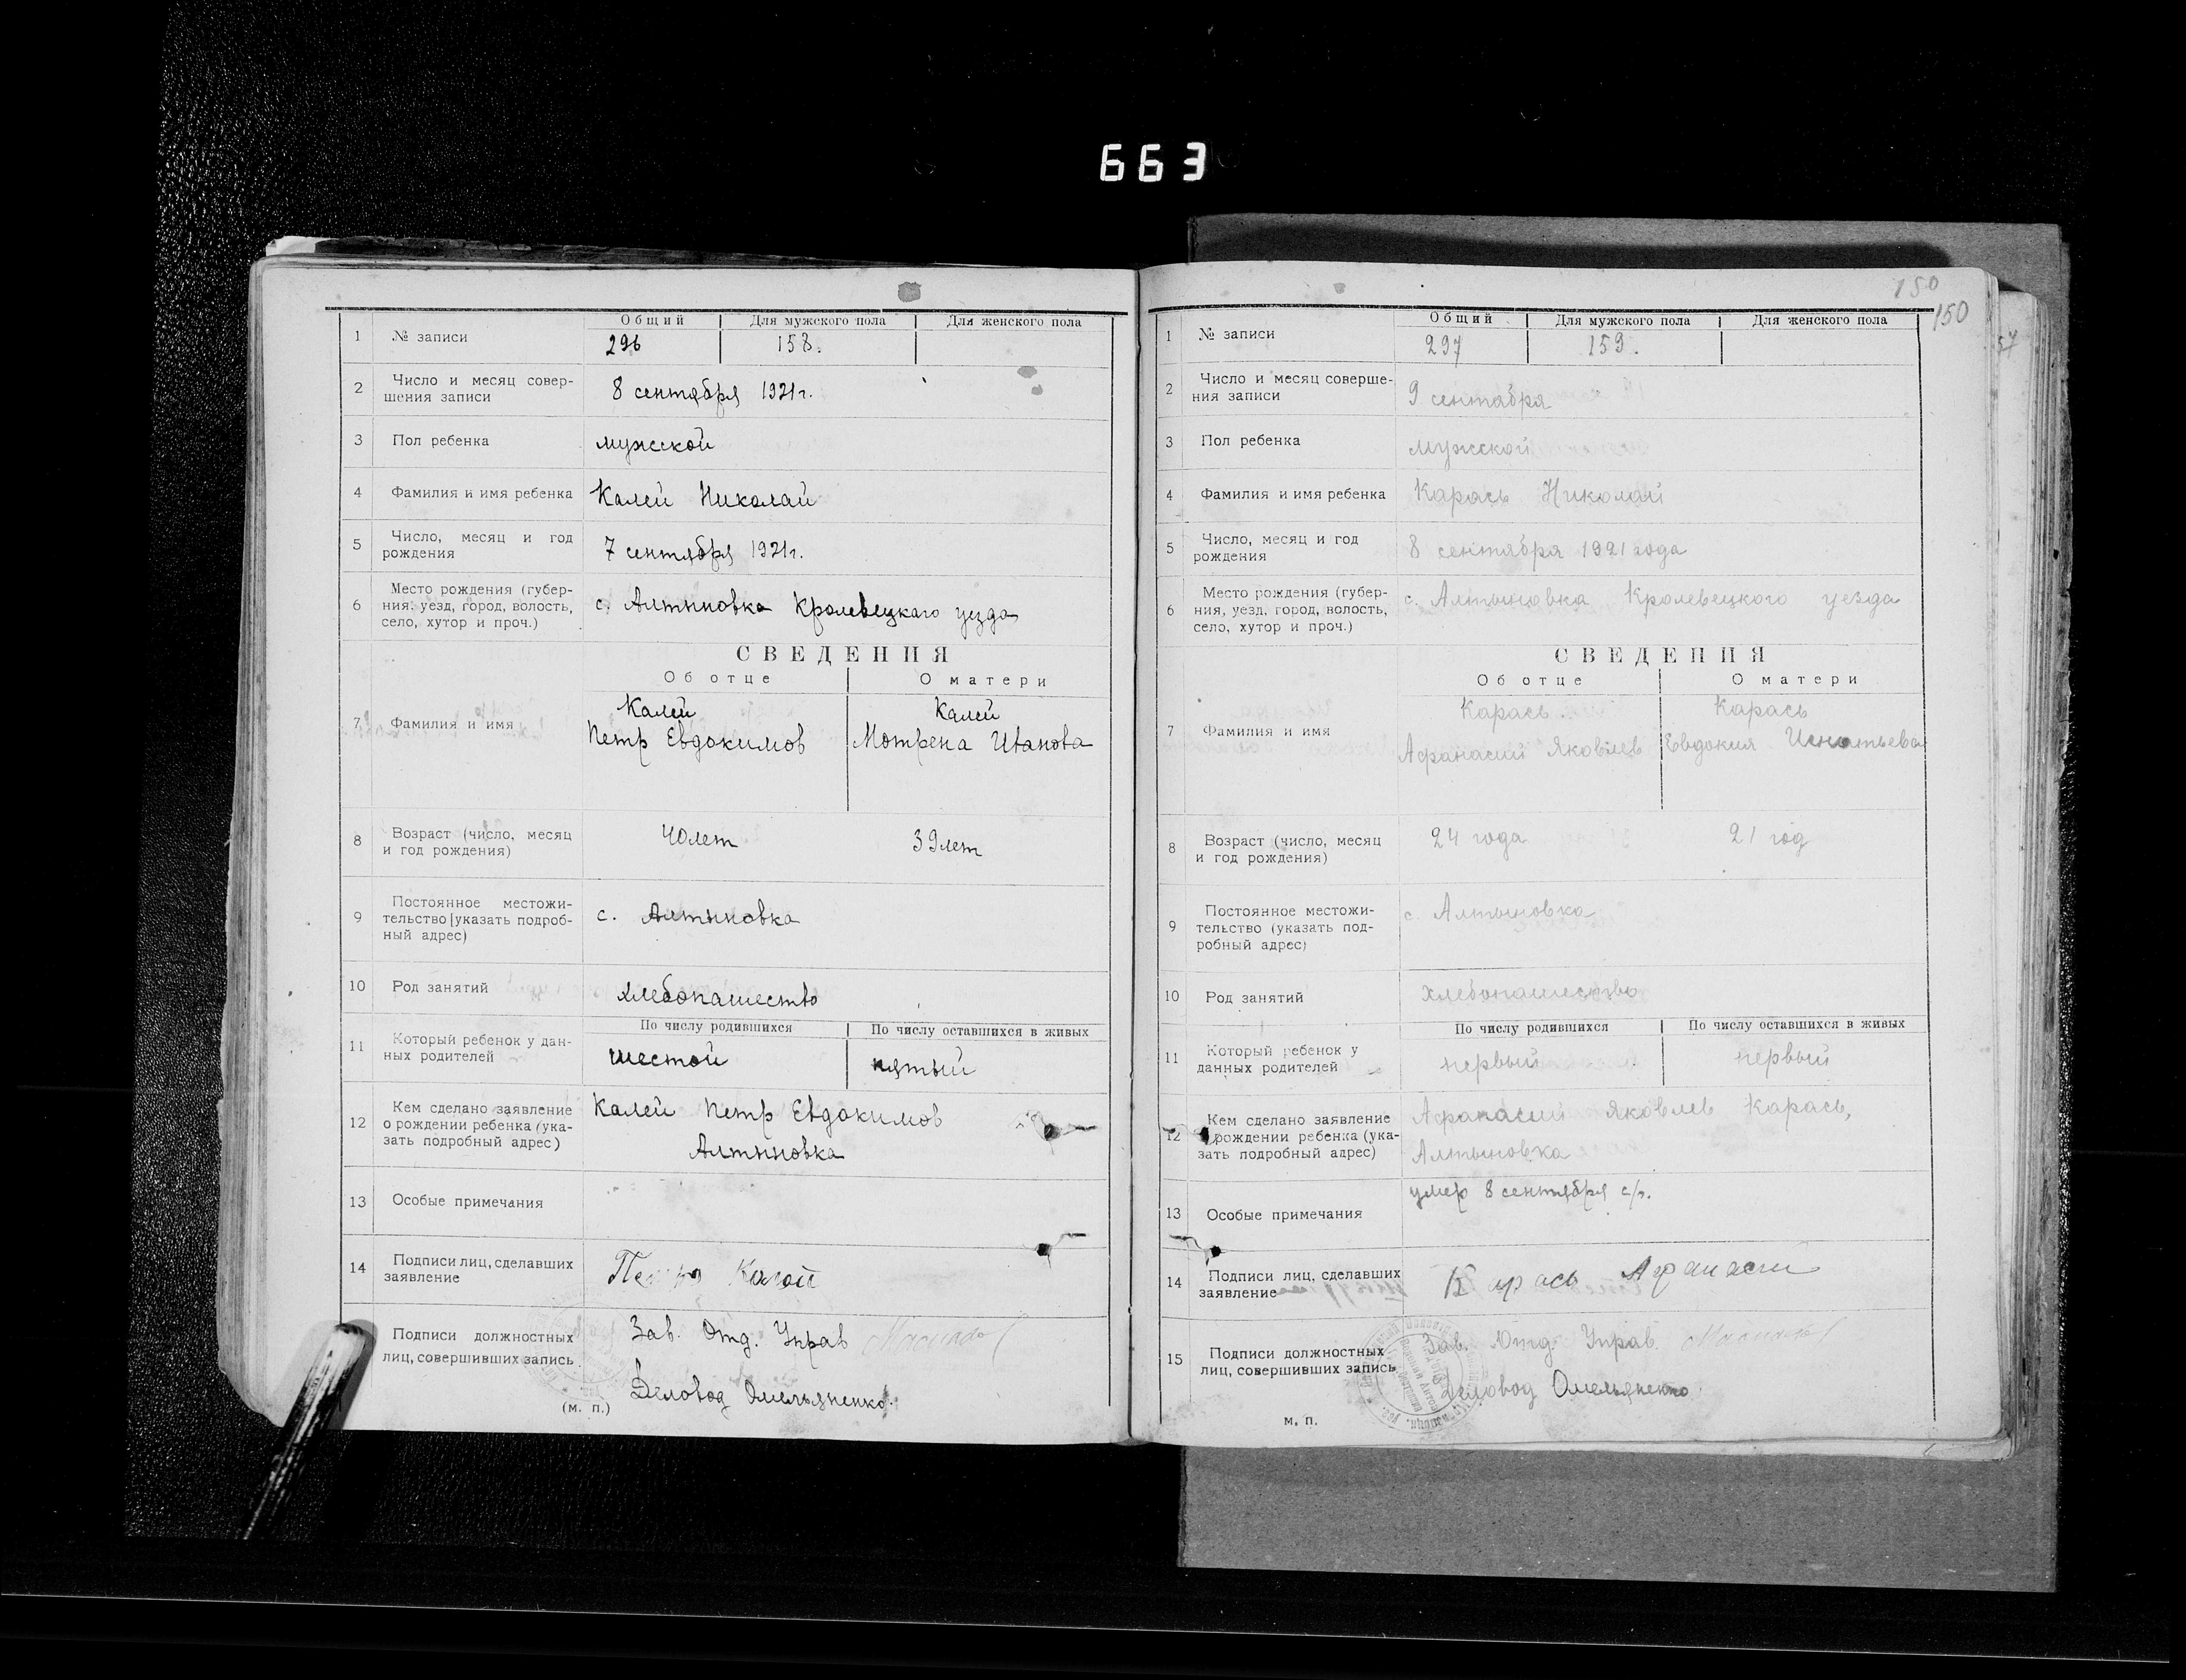 663
Общий Для мужского пола Для женского пола
1 № записи 296 158.
2 Число и месяц совер-
шения записи 8 сентября 1921г.
3 Пол ребенка мужской
4 Фамилия и имя ребенка Калей Николай
5 Число, месяц и год
рождения 7 сентября 1921г.
6 Место рождения (губер-
ния, уезд, город, волость,
село, хутор и проч.) с. Алтыновка Кролевецкаго уезда
СВЕДЕНИЯ
Об отце О матери
7 Фамилия и имя Калей Калей
Петр Евдокимов Мотрена Иванова
8 Возраст (число, месяц
и год рождения) 40 лет 39 лет
9 Постоянное местожи-
тельство [указать подроб-
ный адрес) с. Алтыновка
10 Род занятий хлебопашество
По числу родившихся По числу оставшихся в живых
11 Который ребенок у дан-
ных родителей шестой пятый
12 Кем сделано заявление
о рождении ребенка (ука-
зать подробный адрес) Калей Петр Евдокимов
Алтыновка
13 Особые примечания
14 Подписи лиц, сделавших
заявление Калей
Подписи должностных
лиц, совершивших запись Зав. Отд. Управ
Деловод Омельяненко.
(м. п.)
150
150
57
Общий Для мужского пола Для женского пола
1 № записи 297 159.
2 Число и месяц соверше-
ния записи 9 сентября
3 Пол ребенка мужской
4 Фамилия и имя ребенка Карась Николай
5 Число, месяц и год
рождения 8 сентября 1921 года
6 Место рождения (губер-
ния, уезд, город, волость,
село, хутор и проч.) с. Алтыновка Кролевецкого уезда
СВЕДЕНИЯ
Об отце О матери
7 Фамилия и имя Карась Карась
Афанасий Яковлев Евдокия Игнатьева
8 Возраст (число, месяц
и год рождения) 24 года 21 год
9 Постоянное местожи-
тельство (указать под-
робный адрес) с. Алтыновка
10 Род занятий хлебопашество
По числу родившихся По числу оставшихся в живых
11 Который ребенок у
данных родителей первый первый
12 Кем сделано заявление
о рождении ребенка (ука-
зать подробный адрес) Афанасий Яковлев Карась,
Алтыновка
13 Особые примечания умер 8 сентября с/г.
14 Подписи лиц, сделавших
заявление Карась Афанасий
15 Подписи должностных
лиц, совершивших запись Зав. Отд. Управ.
Деловод Омельяненко
м. п.